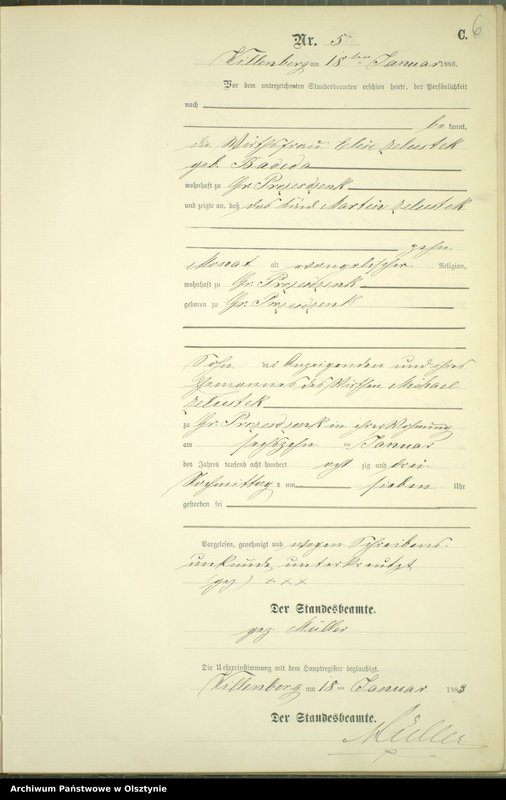 C. 6
Nr. 5
Willenberg am 18ten Januar 1883.
Vor dem unterzeichneten Standesbeamten erschien heute, der Persönlichkeit
nach
be kannt,
die Wirthsfrau Elise
geb.
wohnhaft zu Gr.
und zeigte an, daß das Kind Martin
zehn
Monat alt evangelischer Religion,
wohnhaft zu Gr.
geboren zu Gr.
Sohn der Anzeigenden und ihres
Ehemannes des Wirthen Michael
zu Gr. in ihrer Wohnung
am sechszehn ten Januar
des Jahres tausend acht hundert acht zig und drei
Nachmittags um sieben Uhr
gestorben sei
Vorgelesen, genehmigt und wegen Schreibens
unkunde unterkreutzt
(gez.) + + +
Der Standesbeamte.
gez. Müller
Die Uebereinstimmung mit dem Hauptregister beglaubigt.
Willenberg am 18ten Januar 1883
Der Standesbeamte.
Müller
Archiwum Państwowe w Olsztynie